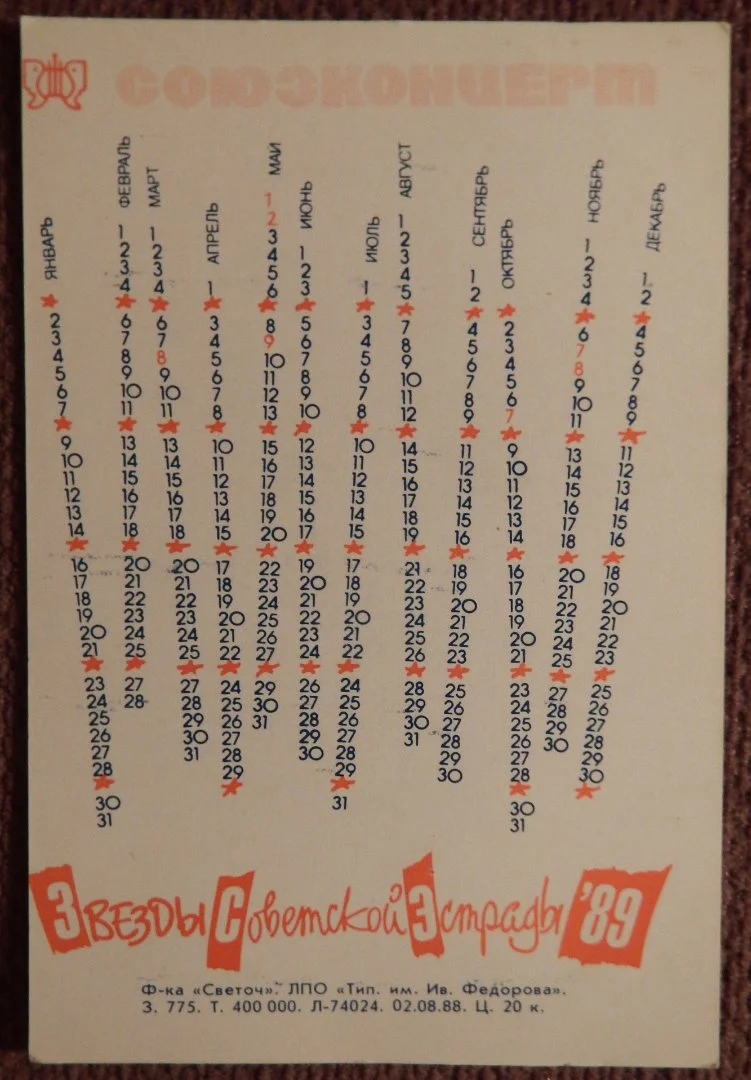 СОЮЗКОНЦЕРТ
ЯНВАРЬ
2 3 4 5 6 7 9 10 11 12 13 14 16 17 18 19 20 21 23 24 25 26 27 28 30 31
ФЕВРАЛЬ
1 2 3 4 6 7 8 9 10 11 13 14 15 16 17 18 20 21 22 23 24 25 27 28
МАРТ
1 2 3 4 6 7 8 9 10 11 13 14 15 16 17 18 20 21 22 23 24 25 27 28 29 30 31
АПРЕЛЬ
1 3 4 5 6 7 8 10 11 12 13 14 15 17 18 19 20 21 22 24 25 26 27 28 29
МАЙ
1 2 3 4 5 6 8 9 10 11 12 13 15 16 17 18 19 20 22 23 24 25 26 27 29 30 31
ИЮНЬ
1 2 3 5 6 7 8 9 10 12 13 14 15 16 17 19 20 21 22 23 24 26 27 28 29 30
ИЮЛЬ
1 3 4 5 6 7 8 10 11 12 13 14 15 17 18 19 20 21 22 24 25 26 27 28 29 31
АВГУСТ
1 2 3 4 5 7 8 9 10 11 12 14 15 16 17 18 19 21 22 23 24 25 26 28 29 30 31
СЕНТЯБРЬ
1 2 4 5 6 7 8 9 11 12 13 14 15 16 18 19 20 21 22 23 25 26 27 28 29 30
ОКТЯБРЬ
2 3 4 5 6 7 9 10 11 12 13 14 16 17 18 19 20 21 23 24 25 26 27 28 30 31
НОЯБРЬ
1 2 3 4 6 7 8 9 10 11 13 14 15 16 17 18 20 21 22 23 24 25 27 28 29 30
ДЕКАБРЬ
1 2 4 5 6 7 8 9 11 12 13 14 15 16 18 19 20 21 22 23 25 26 27 28 29 30
Звезды Советской Эстрады '89
Ф-ка «Светоч». ЛПО «Тип. им. Ив. Федорова».
З. 775. Т. 400 000. Л-74024. 02.08.88. Ц. 20 к.